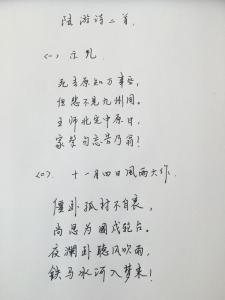 陆游诗二首.
(一) 示儿
死去原知万事空,
但悲不见九州同。
王师北定中原日,
家祭勿忘告乃翁!
(二). 十一月四日风雨大作.
僵卧孤村不自哀,
尚思为国戍轮台。
夜阑卧听风吹雨,
铁马冰河入梦来!